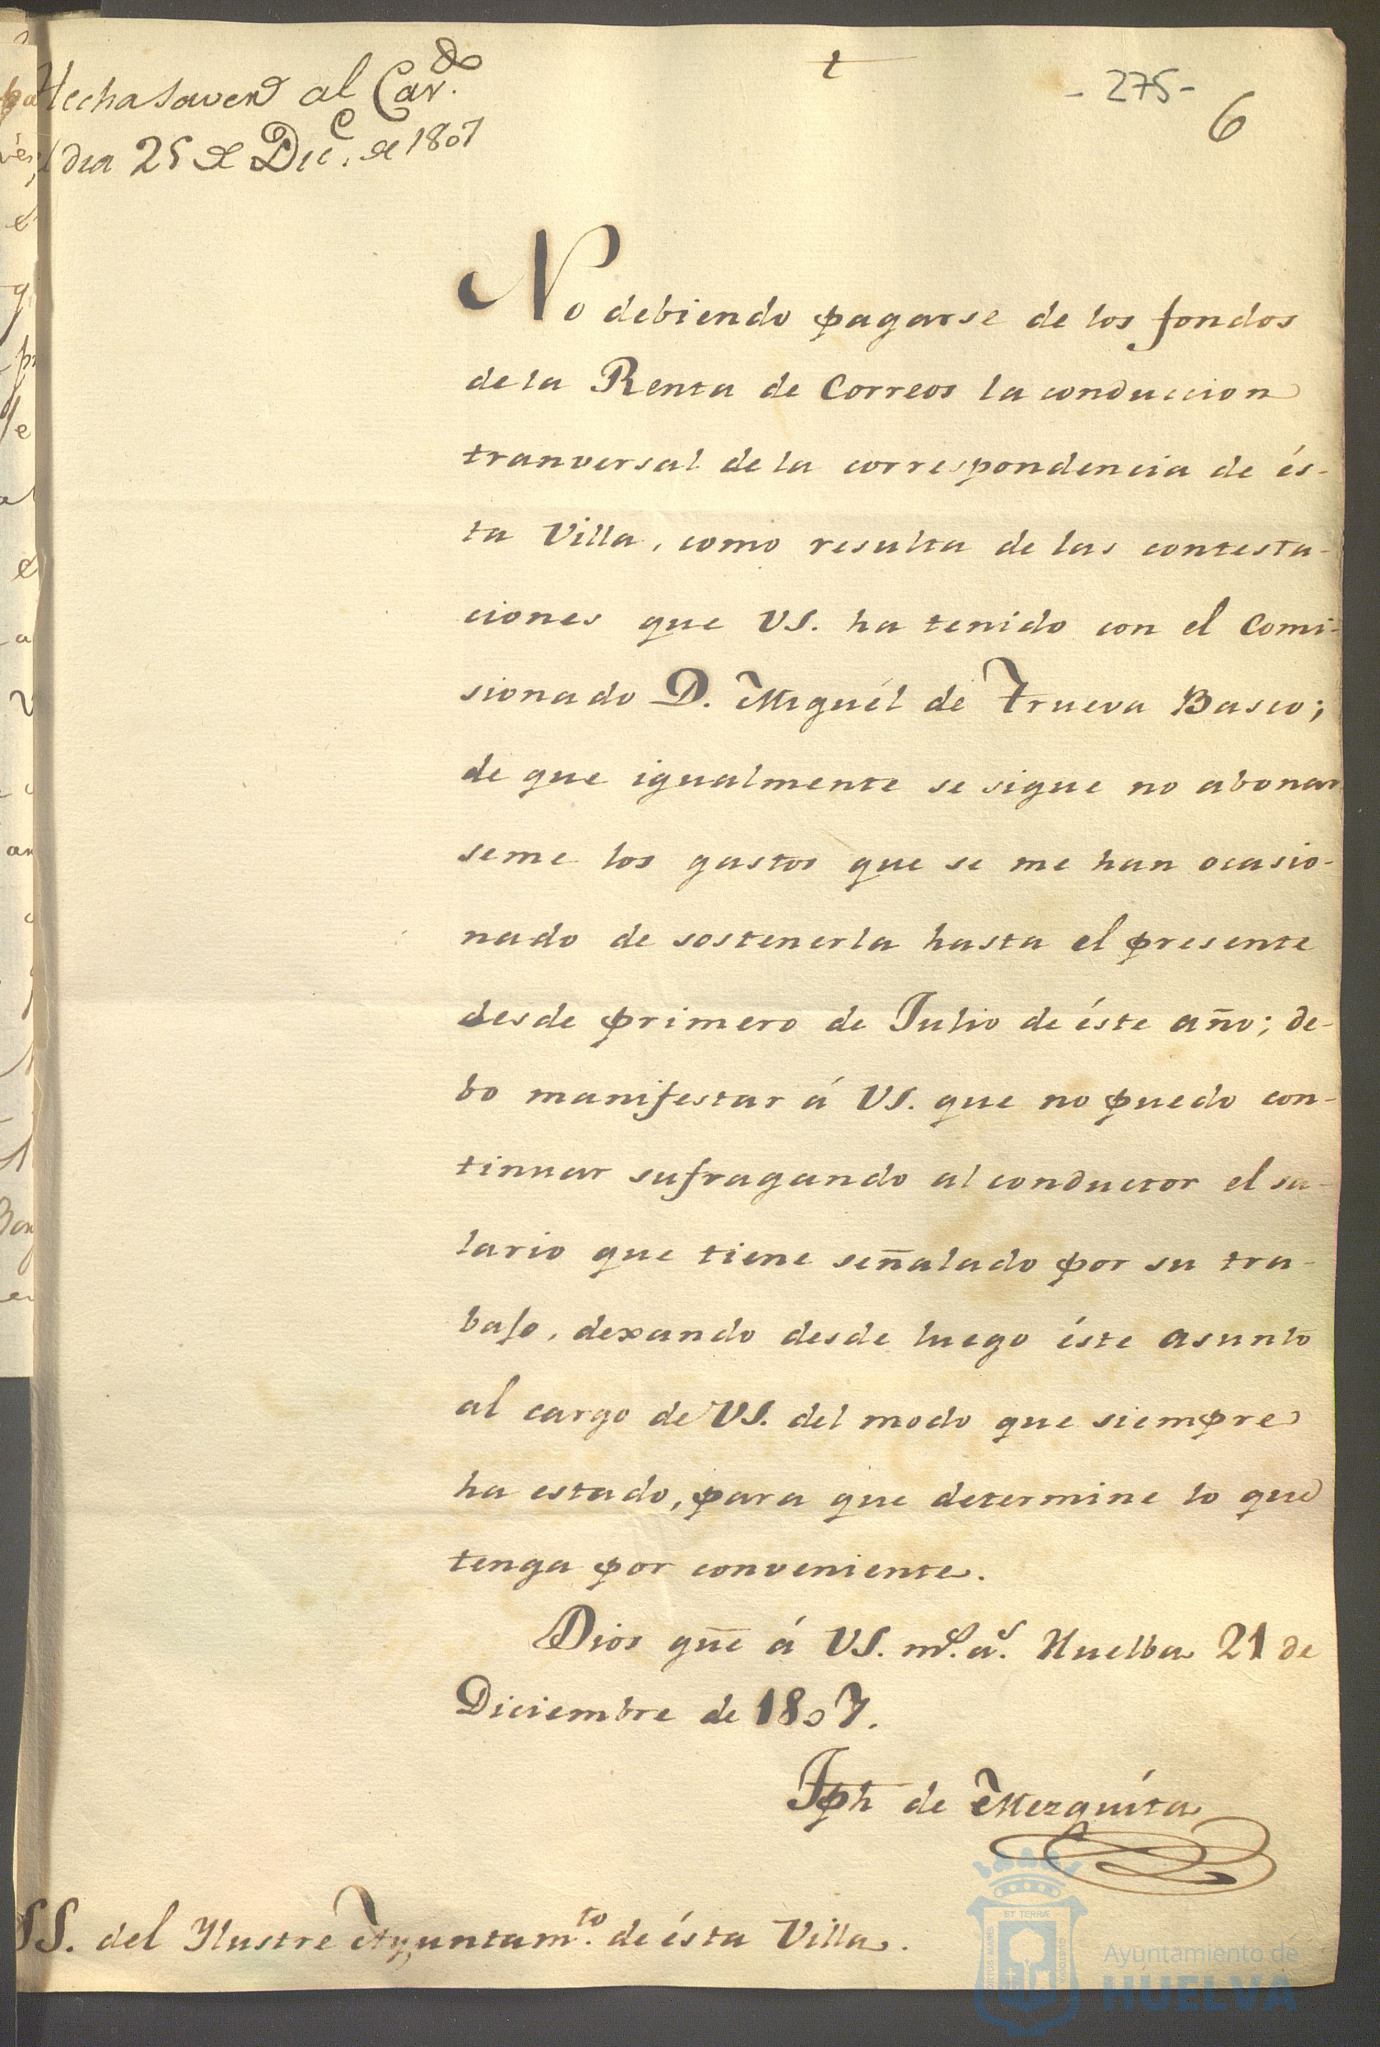 Hecha saver al Cav.do
dia 25 de Dic.e de 1807
t
- 275 -
6
No debiendo pagarse de los fondos
de la Renta de Correos la conduccion
tranversal de la correspondencia de és-
ta Villa, como resulta de las contesta-
ciones que VS. ha tenido con el Comi-
sionado D. Miguél de Trueva Basco;
de que igualmente se sigue no abonar
seme los gastos que se me han ocasio-
nado de sostenerla hasta el presente
desde primero de Julio de éste año; de-
bo manifestar á VS. que no puedo con-
tinuar sufragando al conductor el sa-
lario que tiene señalado por su tra-
bajo, dexando desde luego éste asunto
al cargo de VS. del modo que siempre
ha estado, para que determine lo que
tenga por conveniente.
Dios gūe á VS. m.s a.s Huelba 21 de
Diciembre de 1807.
Jph de Mezquíta
SS. del Ylustre Ayuntam.to de ésta Villa.
Ayuntamiento de
HUELVA